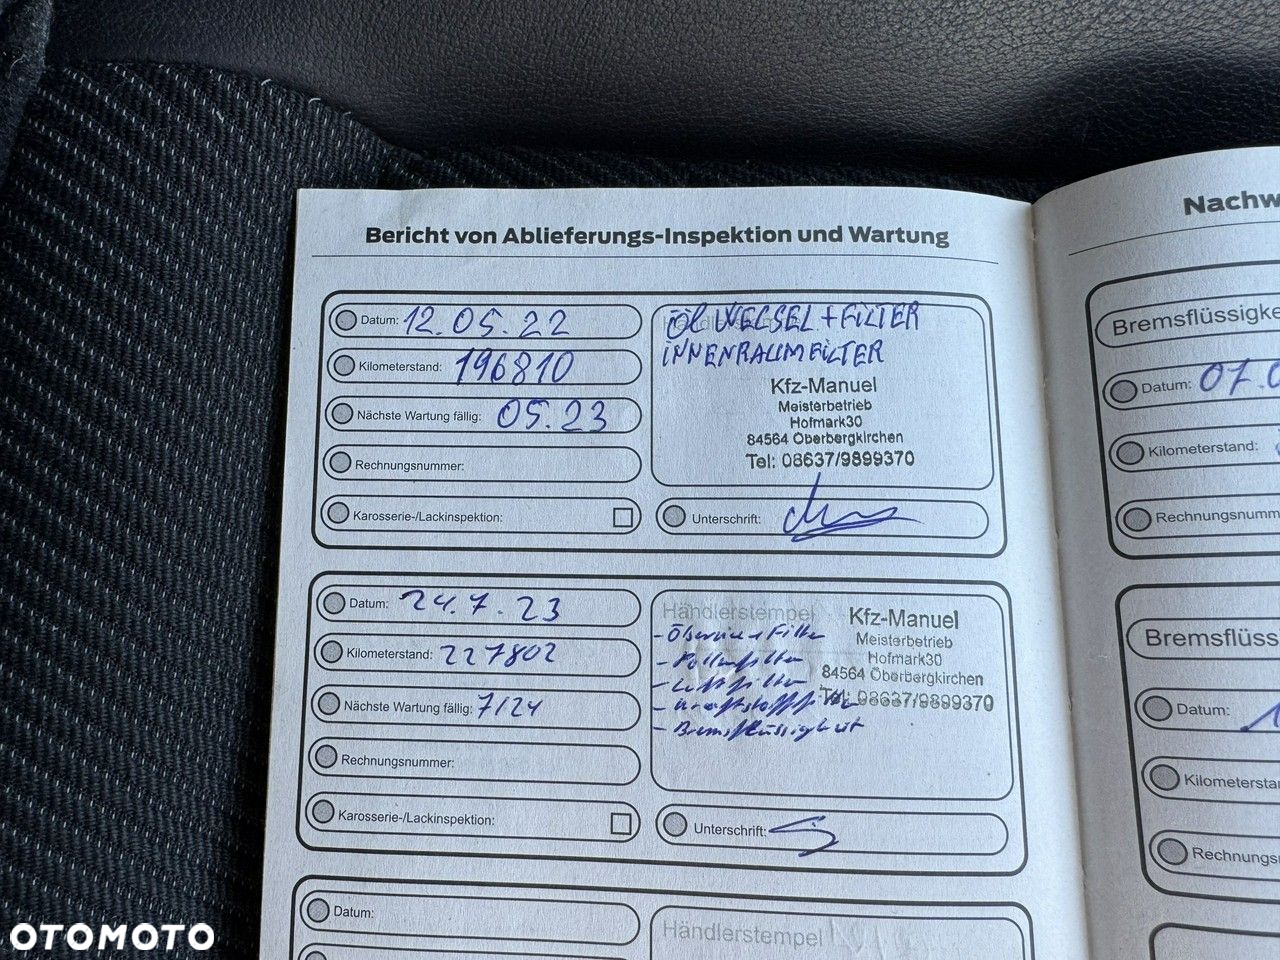 Bericht von Ablieferungs-Inspektion und Wartung
Datum: 12.05.22
Kilometerstand: 196810
Nächste Wartung fällig: 05.23
Rechnungsnummer:
Karosserie-/Lackinspektion:
ÖL WECSEL + FILTER
INNENRAUMFILTER
Kfz-Manuel
Meisterbetrieb
Hofmark30
84564 Oberbergkirchen
Tel: 08637/9899370
Unterschrift:
Datum: 24.7.23
Kilometerstand: 227802
Nächste Wartung fällig: 7/24
Rechnungsnummer:
Karosserie-/Lackinspektion:
Händlerstempel
- Ölservice + Filter
- Pollenfilter
- Luftfilter
- Kraftstofffilter
- Bremsflüssigkeit
Kfz-Manuel
Meisterbetrieb
Hofmark30
84564 Oberbergkirchen
Tel: 08637/9899370
Unterschrift:
Datum:
Händlerstempel
Nachw
Bremsflüssigke
Datum: 07.0
Kilometerstand:
Rechnungsnumm
Bremsflüss
Datum: 1
Kilometersta
Rechnungs
OTOMOTO